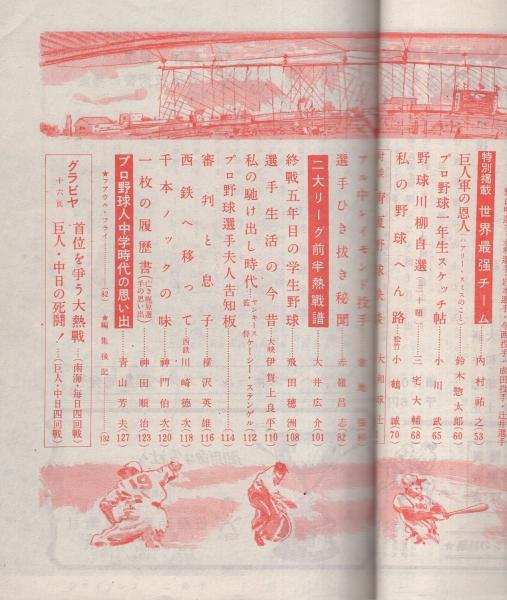 特別掲載 世界最强チーム 内村祐之 53
巨人軍の恩人(ハアリー・スミスのこと) 鈴木惣太郎 60
プロ野球一年生スケッチ帖 小川武 65
野球川柳自選(三十題) 三宅大輔 68
私の野球へん路 松竹 小鶴誠 70
大和球士
選手ひき抜き秘聞 赤嶺昌志 82
二大リーグ前半熱戰譜 大井広介 101
終戰五年目の学生野球 飛田穂洲 108
選手生活の今昔 大映 伊賀上良平 110
私の馳け出し時代 ヤンキース監督 ケーシー・ステンゲル 112
プロ野球選手夫人告知板 114
審判と息子 横沢英雄 116
西鉄へ移って 西鉄 川崎徳次 118
千本ノックの味 神門伯次 120
一枚の履歴書 神田順治 123
プロ野球人中学時代の思い出 青山芳夫 127
★フアウル・フライ (82) ★編集後記 132
グラビヤ 十六頁 首位を争う大熱戰 (南海・毎日四回戦)
巨人・中日の死鬪! (巨人・中日四回戦)